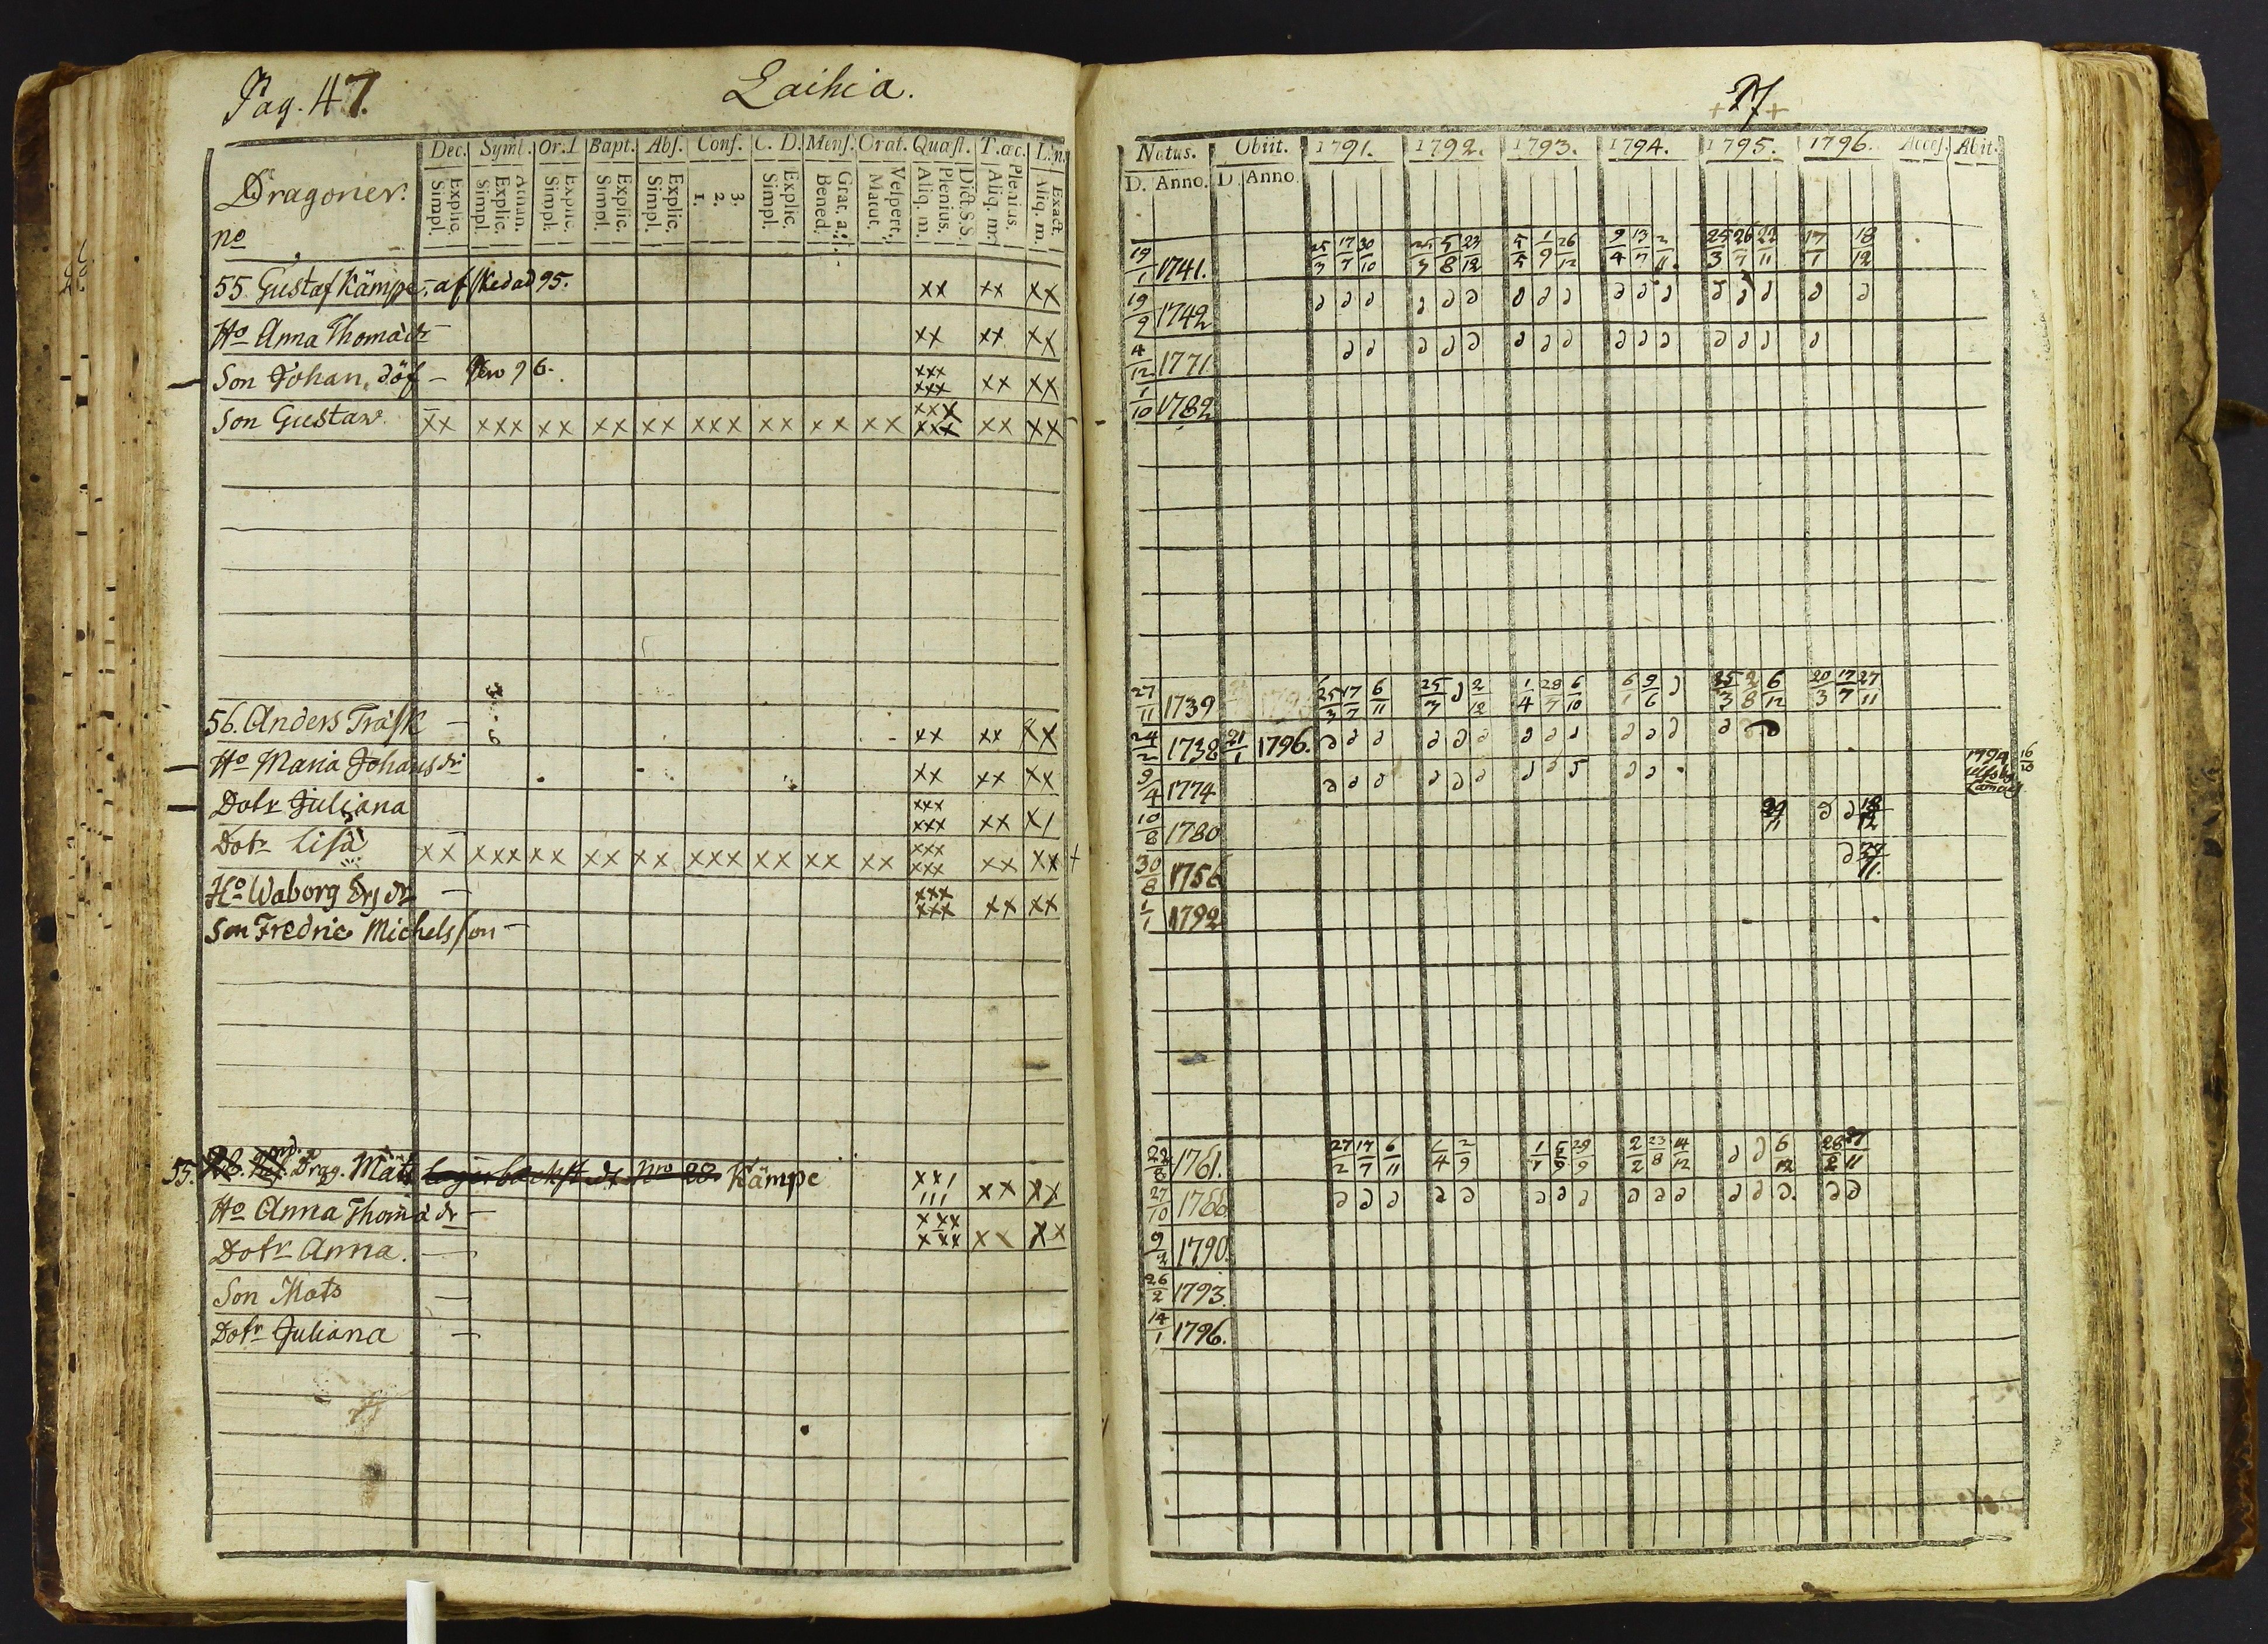 Pag. 47.
Laihia.
Dragoner.
no
Dec. Symb. Or. D Bapt. Abs. Conf. C. D. Mens. Orat. Quæst. T. œc. L. in.
Explic. Simpl.
Explic. Simpl.
Explic. Simpl.
Explic. Simpl.
Explic. Simpl.
3. 2. 1.
Explic. Simpl.
Grat. a. Bened.
Vespert. Matut.
Dict. S. S. Plenius. Aliq. m.
Plenius. Aliq. m.
Exact. Aliq. m.
55. Gustaf Kämpe - afskedad 95. xx xx xx
Ho Anna Thomædr - xx xx xx
Son Johan, döf - 96. xxx xxx xx xx
Son Gustaw - xx xxx xx xx xx xxx xx xx xx xxx xxx xx xx
56. Anders Träsk - xx xx xx
Ho Maria Johansdr xx xx xx
Dotr Juliana xxx xxx xx x/
Dotr Lisa xx xxx xx xx xx xxx xx xx xx xxx xxx xx xx +
Ho Waborg Ersdr - xxx xxx xx xx
Son Fredric Michelsson -
55. Drag. Mats Lagerbäck Nro 28 Kämpe xx/ /// xx xx
Ho Anna Thomædr - xxx xxx xx xx
Dotr Anna. -
Son Mats -
Dotr Juliana -
Natus. Obiit. 1791. 1792. 1793. 1794. 1795. 1796. Access. Abit.
D. Anno. D. Anno.
19/1 1741. 25/3 17/7 30/10 25/3 5/8 23/12 1/9 26/12 9/4 13/7 25/3 26/7 22/11 17/1 18/12
19/9 1742
4/12 1771
1/10 1782
27/11 1739 25/3 17/7 6/11 25/3 2/12 1/4 28/7 6/10 6/1 9/6 25/3 2/8 6/12 20/3 17/7 27/11
24/2 1738 21/1 1796.
9/4 1774 1794 16/10
10/8 1780 29/11 18/12
30/8 1756 27/11.
1/1 1792
22/8 1761. 27/2 17/7 6/11 2/9 29/9 2/2 23/8 14/12 6/12 28/2 27/11
27/10 1766
9/2 1790.
26/2 1793.
14/1 1796.